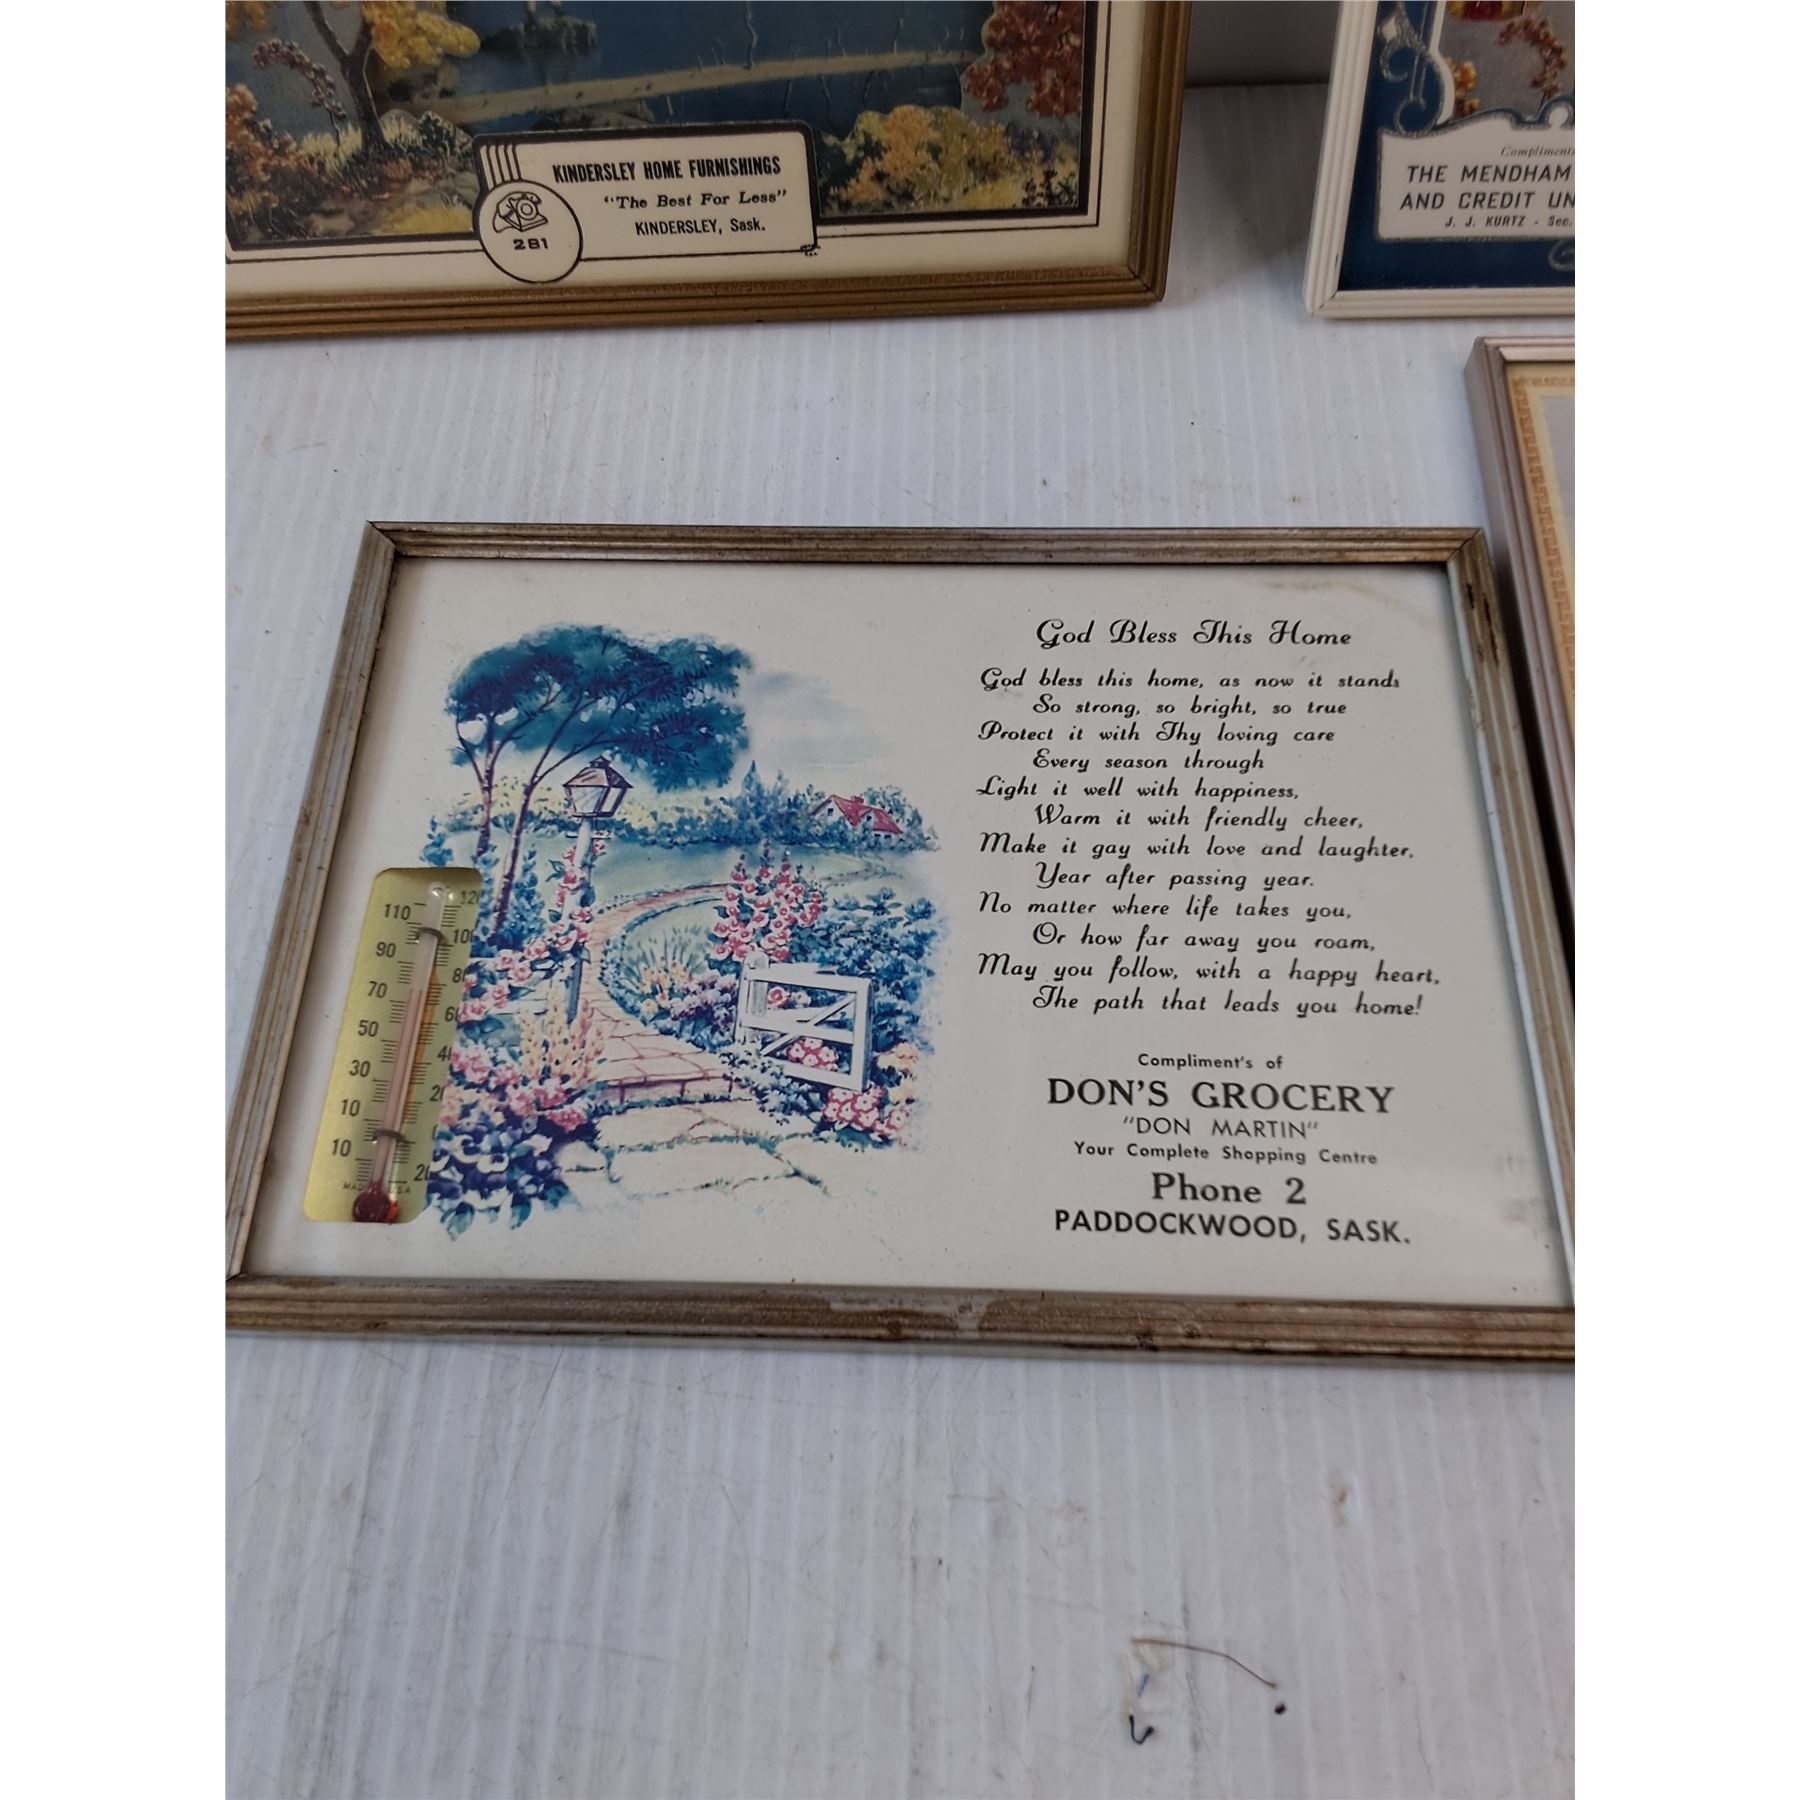 KINDERSLEY HOME FURNISHINGS
"The Best For Less"
KINDERSLEY, Sask.
281
Compliments
THE MENDHAM
AND CREDIT UN
J. J. KURTZ - Sec.
God Bless This Home
God bless this home, as now it stands
So strong, so bright, so true
Protect it with Thy loving care
Every season through
Light it well with happiness,
Warm it with friendly cheer,
Make it gay with love and laughter,
Year after passing year.
No matter where life takes you,
Or how far away you roam,
May you follow, with a happy heart,
The path that leads you home!
Compliment's of
DON'S GROCERY
"DON MARTIN"
Your Complete Shopping Centre
Phone 2
PADDOCKWOOD, SASK.
120
110
100
90
80
70
60
50
40
30
20
10
0
10
20
MADE USA